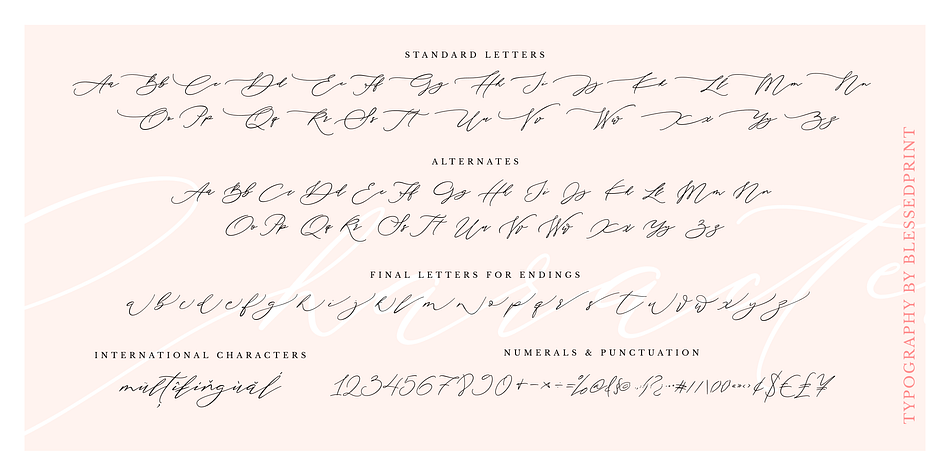 STANDARD LETTERS
Aa Bb Cc Dd Ee Ff Gg Hh Ii Jj Kk Ll Mm Nn
Oo Pp Qq Rr Ss Tt Uu Vv Ww Xx Yy Zz
ALTERNATES
Aa Bb Cc Dd Ee Ff Gg Hh Ii Jj Kk Ll Mm Nn
Oo Pp Qq Rr Ss Tt Uu Vv Ww Xx Yy Zz
FINAL LETTERS FOR ENDINGS
a b c d e f g h i j k l m n o p q r s t u v w x y z
INTERNATIONAL CHARACTERS
NUMERALS & PUNCTUATION
1234567890
TYPOGRAPHY BY BLESSEDPRINT